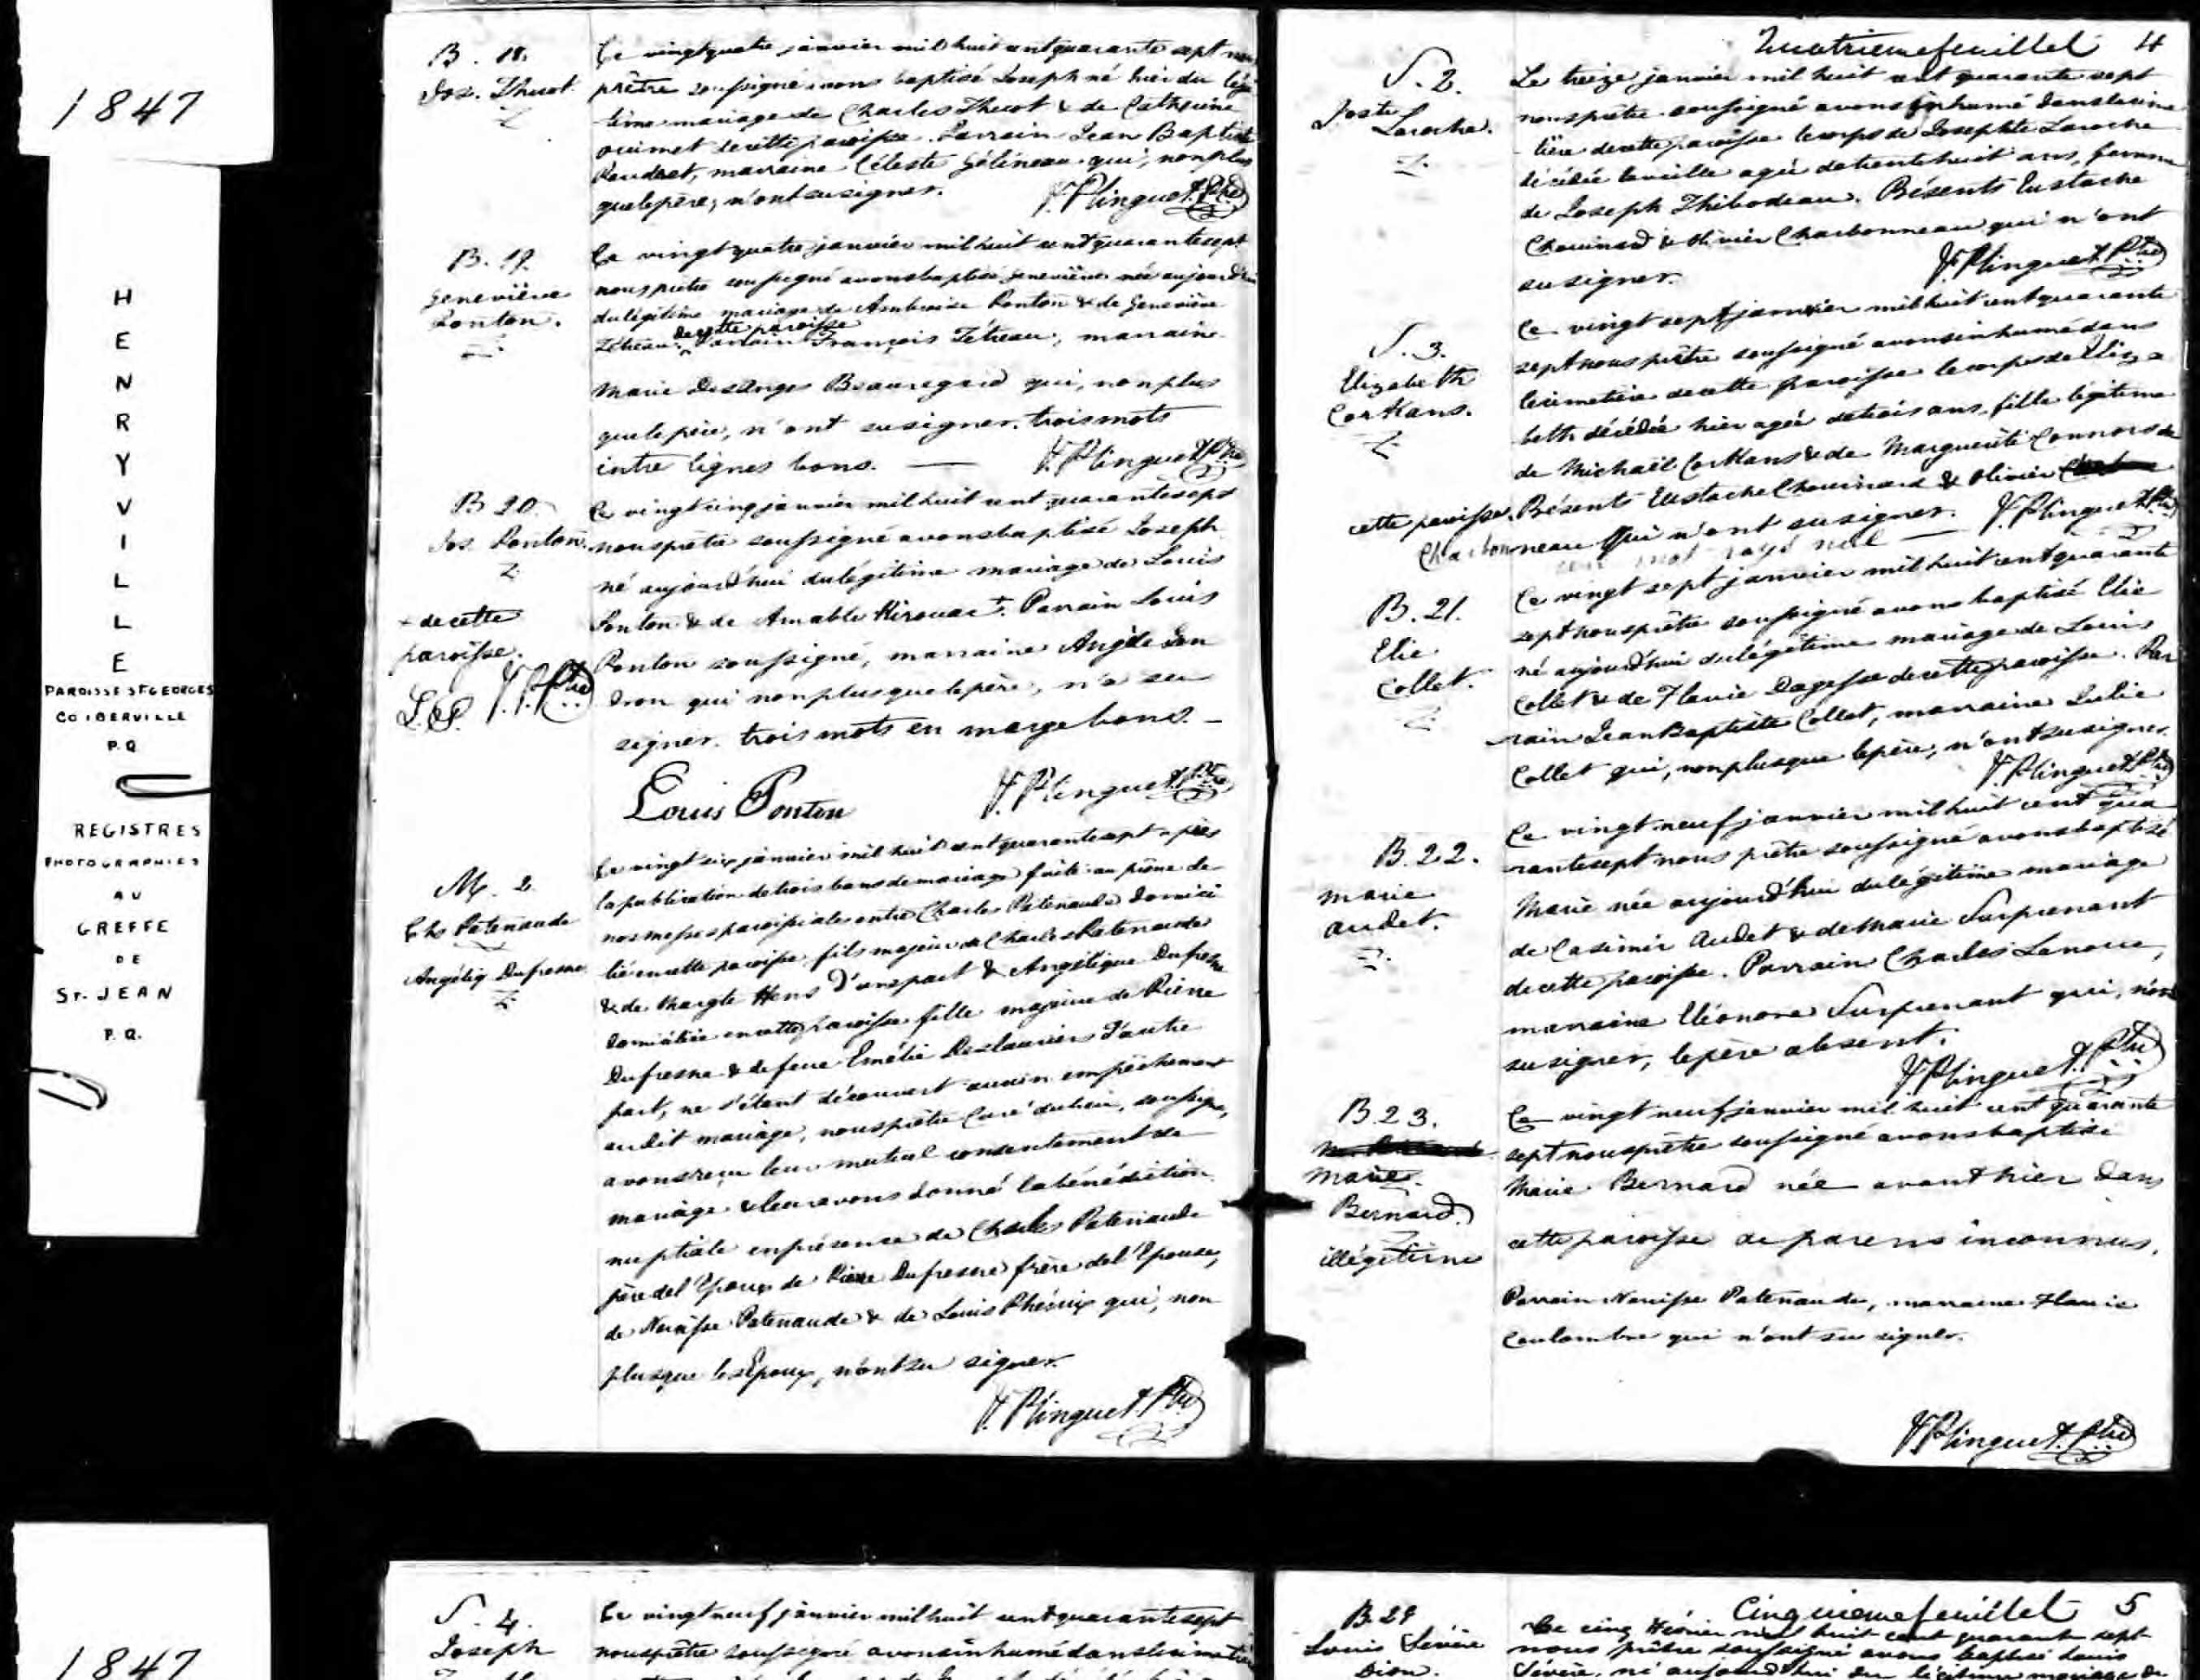 1847
HENRYVILLE
PAROISSE ST GEORGES
CO. IBERVILLE
P.Q
REGISTRES
PHOTOGRAPHIES
AU
GREFFE
DE
ST. JEAN
P.Q.
B. 18.
Jos. Thuot
Ce vingtquatre janvier mil huit cent quarante sept nous
prêtre soussigné avons baptisé Joseph né hier du légi
time mariage de Charles Thuot & de Catherine
ouimet de cette paroisse. Parrain Jean Baptiste
marraine Céleste Gélineau qui, non plus
que le père, n'ont su signer.
V. Plinguet. Ptre
B. 19.
Geneviève
Ponton.
Ce vingt quatre janvier mil huit cent quarante sept
nous prêtre soussigné avons baptisé Geneviève née aujourd'hui
du légitime mariage de Ambroise Ponton & de Geneviève
de cette paroisse
Tétreau. Parrain François Tétreau, marraine
Marie DesAnges Beauregard qui, non plus
que le père, n'ont su signer. trois mots
intre lignes bons.
V. Plinguet Ptre
B 20.
Jos. Ponton.
Ce vingt cinq janvier mil huit cent quarante sept
nous prêtre soussigné avons baptisé Joseph
né aujourd'hui du légitime mariage de Louis
Ponton & de Amable Kirouac +. Parrain Louis
Ponton soussigné, marraine Angèle Gen
dron qui non plus que le père, n'a su
signer. trois mots en marge bons. -
+ de cette
paroisse.
L.P. V.P. Ptre
Louis Ponton
V. Plinguet Ptre
M. 2.
Chs Patenaude
Angéliq Dufresne.
Ce vingt six janvier mil huit cent quarante sept après
la publication de trois bans de mariage faite au prône de
nos messes paroissiales entre Charles Patenaude domici
lié en cette paroisse fils majeur de Charles Patenaude
& de Margte Hens d'une part & Angélique Dufresne
domiciliée en cette paroisse fille majeure de Pierre
Dufresne & de feue Emélie Deslauriers d'autre
part, ne s'étant découvert aucun empêchement
au dit mariage, nous prêtre Curé du lieu, soussigné,
avons reçu leur mutuel consentement de
mariage & leur avons donné la bénédiction
nuptiale en présence de Charles Patenaude
père del'Epoux de Pierre Dufresne frère del'Epouse,
de Narcisse Patenaude & de Louis Phénix qui, non
plus que les Epoux, n'ont su signer.
V. Plinguet. Ptre
Quatrieme feuillet 4
S. 2.
Joste
Laroche.
Le treize janvier mil huit cent quarante sept
nous prêtre soussigné avons inhumé dans le cime
tière de cette paroisse le corps de Josephte Laroche
décédée la veille agée de trente huit ans, femme
de Joseph Thibodeau. Présents Eustache
Chouinard & Olivier Charbonneau qui n'ont
su signer.
V. Plinguet. Ptre
S. 3.
Elizabeth
Corkans.
Ce vingt sept janvier mil huit cent quarante
sept nous prêtre soussigné avons inhumé dans
le cimetière de cette paroisse le corps de Eliza
beth décédée hier agée de trois ans, fille légitime
de Michaël Corkans & de Marguerite Connors de
cette paroisse. Présents Eustache Chouinard & Olivier
Charbonneau Qui n'ont su signer. V. Plinguet Ptre
mot rayé nul
B. 21.
Elie
Collet.
Ce vingt sept janvier mil huit cent quarante
sept nous prêtre soussigné avons baptisé Elie
né aujourd'hui du légitime mariage de Louis
Collet & de Flavie Dagesse de cette paroisse. Par
rain Jean Baptiste Collet, marraine Julie
Collet qui, non plus que le père, n'ont su signer.
V. Plinguet Ptre
B. 22.
Marie
Audet.
Ce vingt neuf janvier mil huit cent qua
rante sept nous prêtre soussigné avons baptisé
Marie née aujourd'hui du légitime mariage
de Casimir Audet & de Marie Surprenant
de cette paroisse. Parrain Charles Lanoue,
marraine Eléonore Surprenant qui, n'ont
su signer, le père absent.
V. Plinguet. Ptre
B. 23.
Marie
Bernard
illégitime
Ce vingt neuf janvier mil huit cent quarante
sept nous prêtre soussigné avons baptisé
Marie Bernard née avant hier dans
cette paroisse de parens inconnus.
Parrain Narcisse Patenaude, marraine Flavie
Coulombe qui n'ont su signer.
V. Plinguet. Ptre
1847
S. 4.
Joseph
Ce vingt neuf janvier mil huit cent quarante sept
nous prêtre soussigné avons inhumé dans le cimetière
Cinquieme feuillet 5
B. 24
Louis Sévère
Dion.
Le cinq février mil huit cent quarante sept
nous prêtre soussigné avons baptisé Louis
Sévère, né aujourd'hui du légitime mariage de